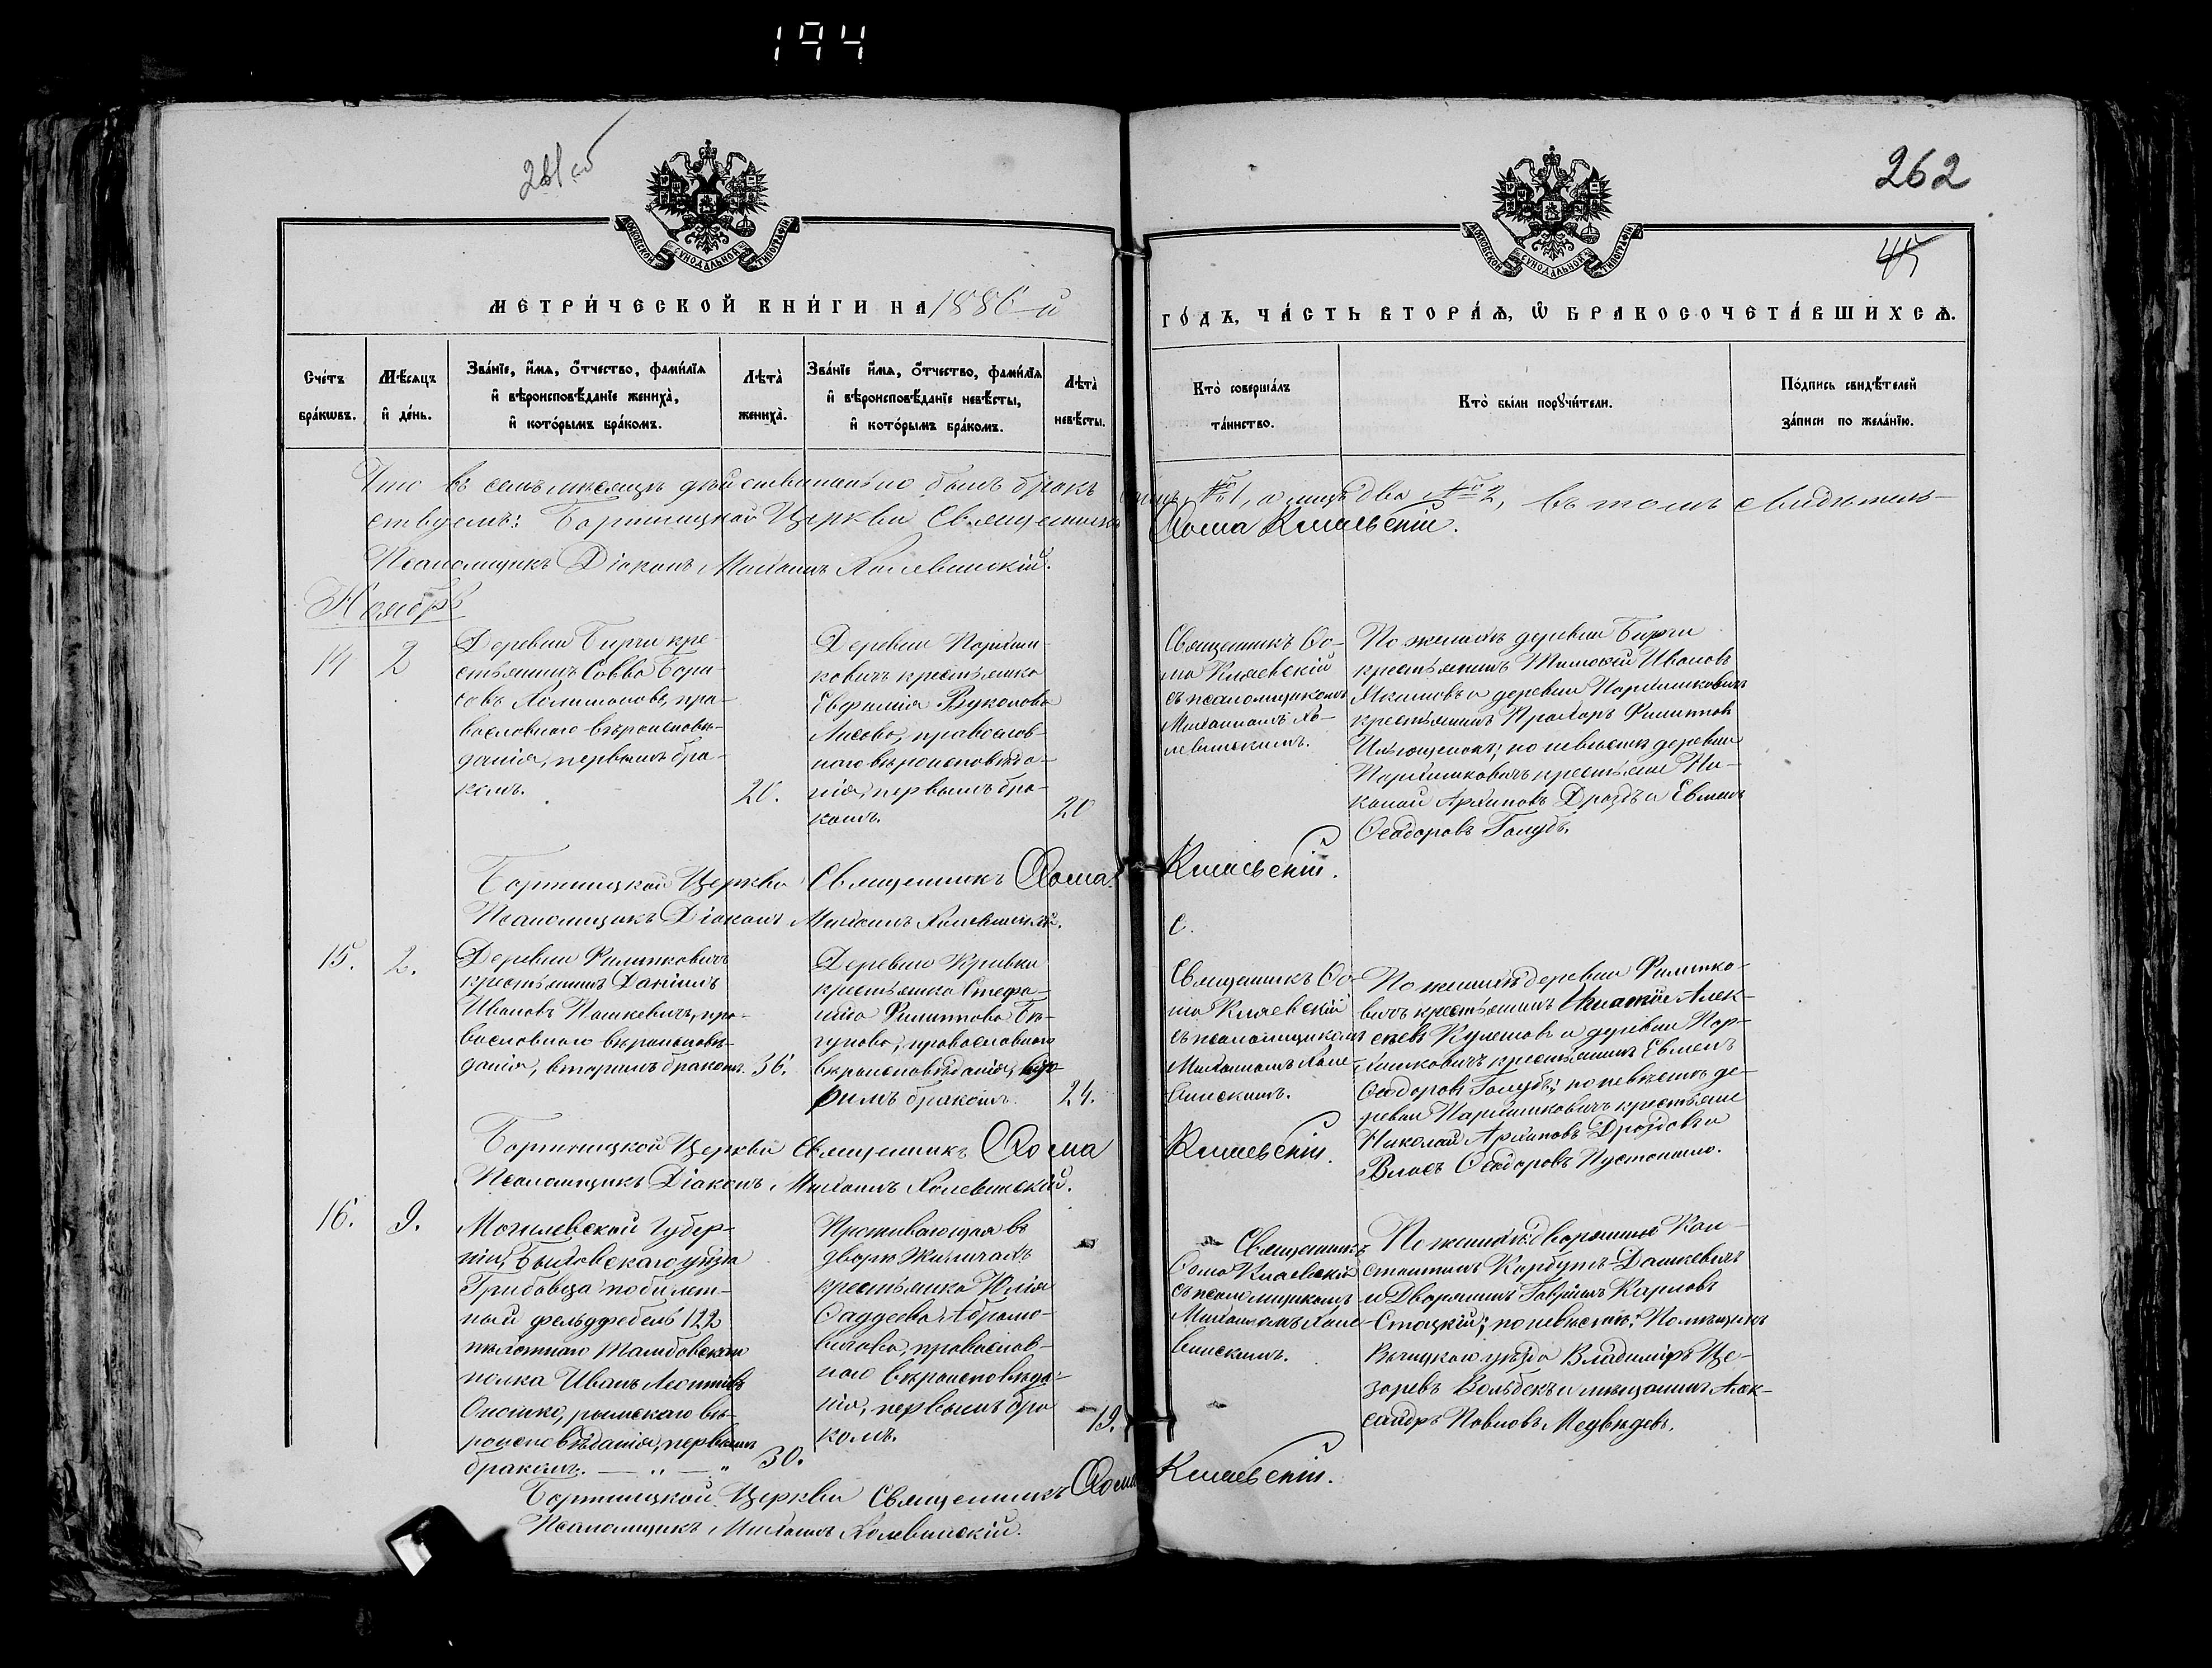 194
262
45
МОСКОВСКОЙ СѴНОДАЛЬНОЙ ТИПОГРАФІИ
МОСКОВСКОЙ СѴНОДАЛЬНОЙ ТИПОГРАФІИ
МЕТРИ́ЧЕСКОЙ КНИ́ГИ НА 1886-й
ГО́ДЪ, ЧА́СТЬ ВТОРА́Ѧ, Ѽ БРАКОСОЧЕТА́ВШИХСѦ.
Сче́тъ бра́кѡвъ.
Мѣ́сяцъ и де́нь.
Зва́нїе, и́мя, о́тчество, фами́лїя
и вѣроисповѣ́данїе жениха̀,
и кото́рымъ бра́комъ.
Лѣта̀ жениха̀.
Зва́нїе и́мя, о́тчество, фами́лїя
и вѣроисповѣ́данїе невѣ́сты,
и кото́рымъ бра́комъ.
Лѣта̀ невѣ́сты.
Кто̀ соверша́лъ
та́инство.
Кто̀ бы́ли порꙋчи́тели.
По́дпись свидѣ́телей
за́писи по жела́нїю.
Что въ семъ мѣсяцѣ действительно былъ бракъ одинъ № 1, а лицъ два № 2, въ томъ свидѣтель-
ствуемъ: Бортницкой Церкви Священникъ Ѳома Кляевскій.
Псаломщикъ Діаконъ Михаилъ Холевинскій.
Ноябрь
14
2
Деревни Бирчи кре-
стьянинъ Савва Бори-
совъ Филимоновъ, пра-
вославнаго вѣроисповѣ-
данія, первымъ бра-
комъ.
20.
Деревни Пархим-
ковичъ крестьянка
Евфимія Вуколова
Лисова, православ-
наго вѣроисповѣда-
нія, первымъ бра-
комъ.
20
Священникъ Ѳо-
ма Кляевскій
съ псаломщикомъ
Михаиломъ Хо-
левинскимъ.
По женихѣ деревни Бирчи
крестьянинъ Тимофей Ивановъ
Якимовъ и деревни Пархимковичъ
крестьянинъ Прохоръ Филипповъ
по невѣстѣ деревни
Пархимковичъ крестьяне Ни-
колай Архиповъ Дроздъ и Евменъ
Ѳеодоровъ Голубъ.
Бортницкой Церкви Священникъ Ѳома Кляевскій.
Псаломщикъ Діаконъ Михаилъ Холевинскій.
С.
15.
2.
Деревни Филипковичъ
крестьянинъ Даніилъ
Ивановъ Пашкевичъ, пра-
вославнаго вѣроисповѣ-
данія, вторымъ бракомъ.
36.
Деревни Кривки
крестьянка Стефа-
нида Филиппова Бѣ-
гунова, православнаго
вѣроисповѣданія, вто-
рымъ бракомъ.
24.
Священникъ Ѳо-
ма Кляевскій
съ псаломщикомъ
Михаиломъ Холе-
винскимъ.
По женихѣ деревни Филипко-
вичъ крестьянинъ Игнатій Алек-
сѣевъ Кулешовъ и деревни Пар-
химковичъ крестьянинъ Евменъ
Ѳеодоровъ Голубъ; по невѣстѣ де-
ревни Пархимковичъ крестьяне
Николай Архиповъ Дроздовъ и
Власъ Ѳеодоровъ Пустошило.
Бортницкой Церкви Священникъ Ѳома Кляевскій.
Псаломщикъ Діаконъ Михаилъ Холевинскій.
16.
9.
Могилевской Губер-
ніи, Быховскаго уѣзда
Грибовца побилет-
ный фельдфебель 122
пѣхотнаго Тамбовскаго
полка Иванъ Леонтіевъ
Онсимо, римскаго вѣ-
роисповѣданія, первымъ
бракомъ. — „ — „
30.
Проживающая въ
дворѣ Жиличахъ
крестьянка Юлія
Ѳаддеева Абрамо-
вичова, православ-
наго вѣроисповѣда-
нія, первымъ бра-
комъ.
19.
Священникъ
Ѳома Кляевскій
съ псаломщикомъ
Михаиломъ Холе-
винскимъ.
По женихѣ: дворянинъ Кон-
стантинъ Корбутъ-Дашкевичъ
и Дворянинъ Гавріилъ Карловъ
Стацкій; по невѣстѣ: Помѣщикъ
уѣзда Владиміръ Це-
заревъ Вольбекъ и мѣщанинъ Алек-
сандръ Павловъ Медвѣдевъ.
Бортницкой Церкви Священникъ Ѳома Кляевскій.
Псаломщикъ Михаилъ Холевинскій.